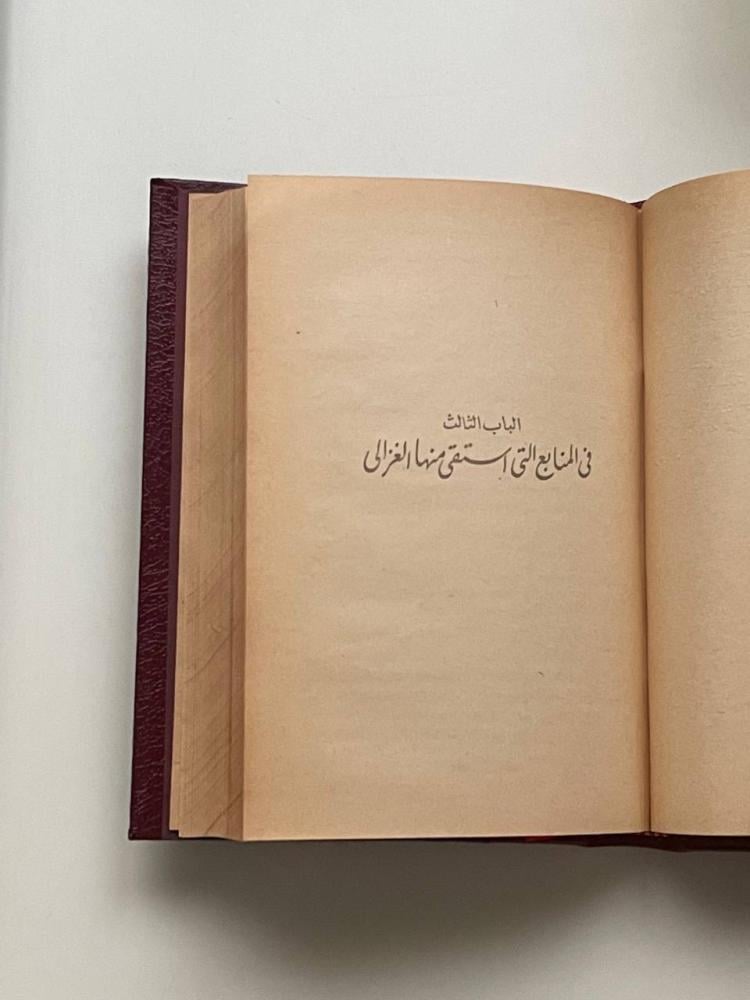 الباب الثالث
فى المنابع التى استقى منها الغزالى